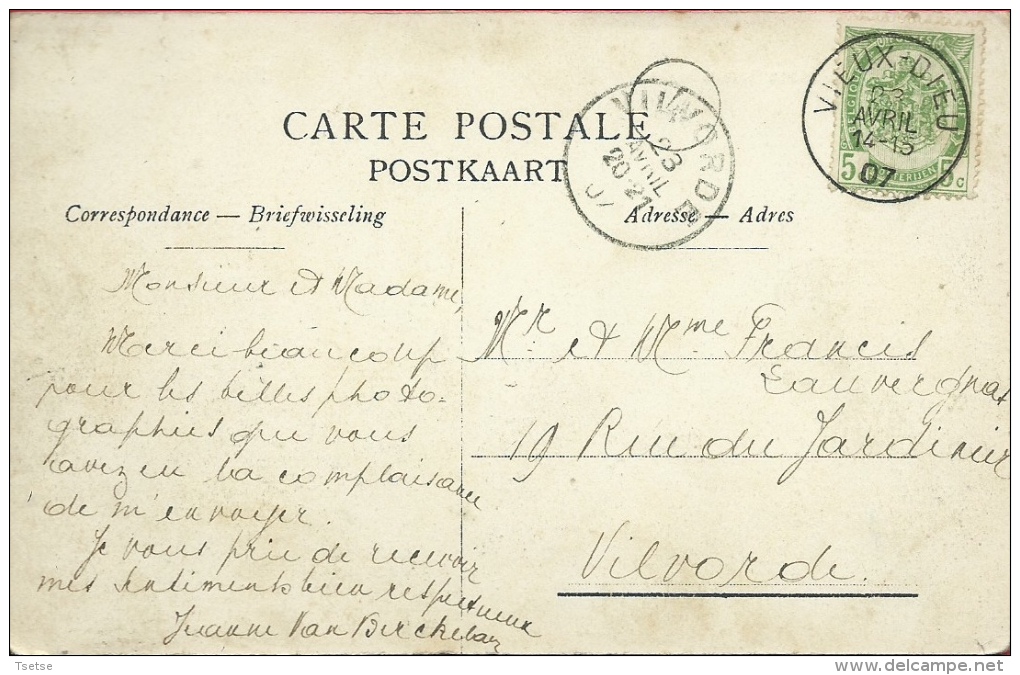 CARTE POSTALE
POSTKAART
Correspondance — Briefwisseling
Adresse — Adres
VIEUX-DIEU
23
AVRIL
14-15
07
5
5c
VILVORDE
23
AVRIL
20-21
07
Monsieur et Madame,
Merci beaucoup
pour les belles photo-
graphies que vous
avez eu la complaisance
de m'envoyer.
Je vous prie de recevoir
mes sentiments bien respectueux
Jeanne Van
Mr et Mme Francis
Lauvergnat
19 Rue du Jardinier
Vilvorde.
Tsetse
delcampe.net